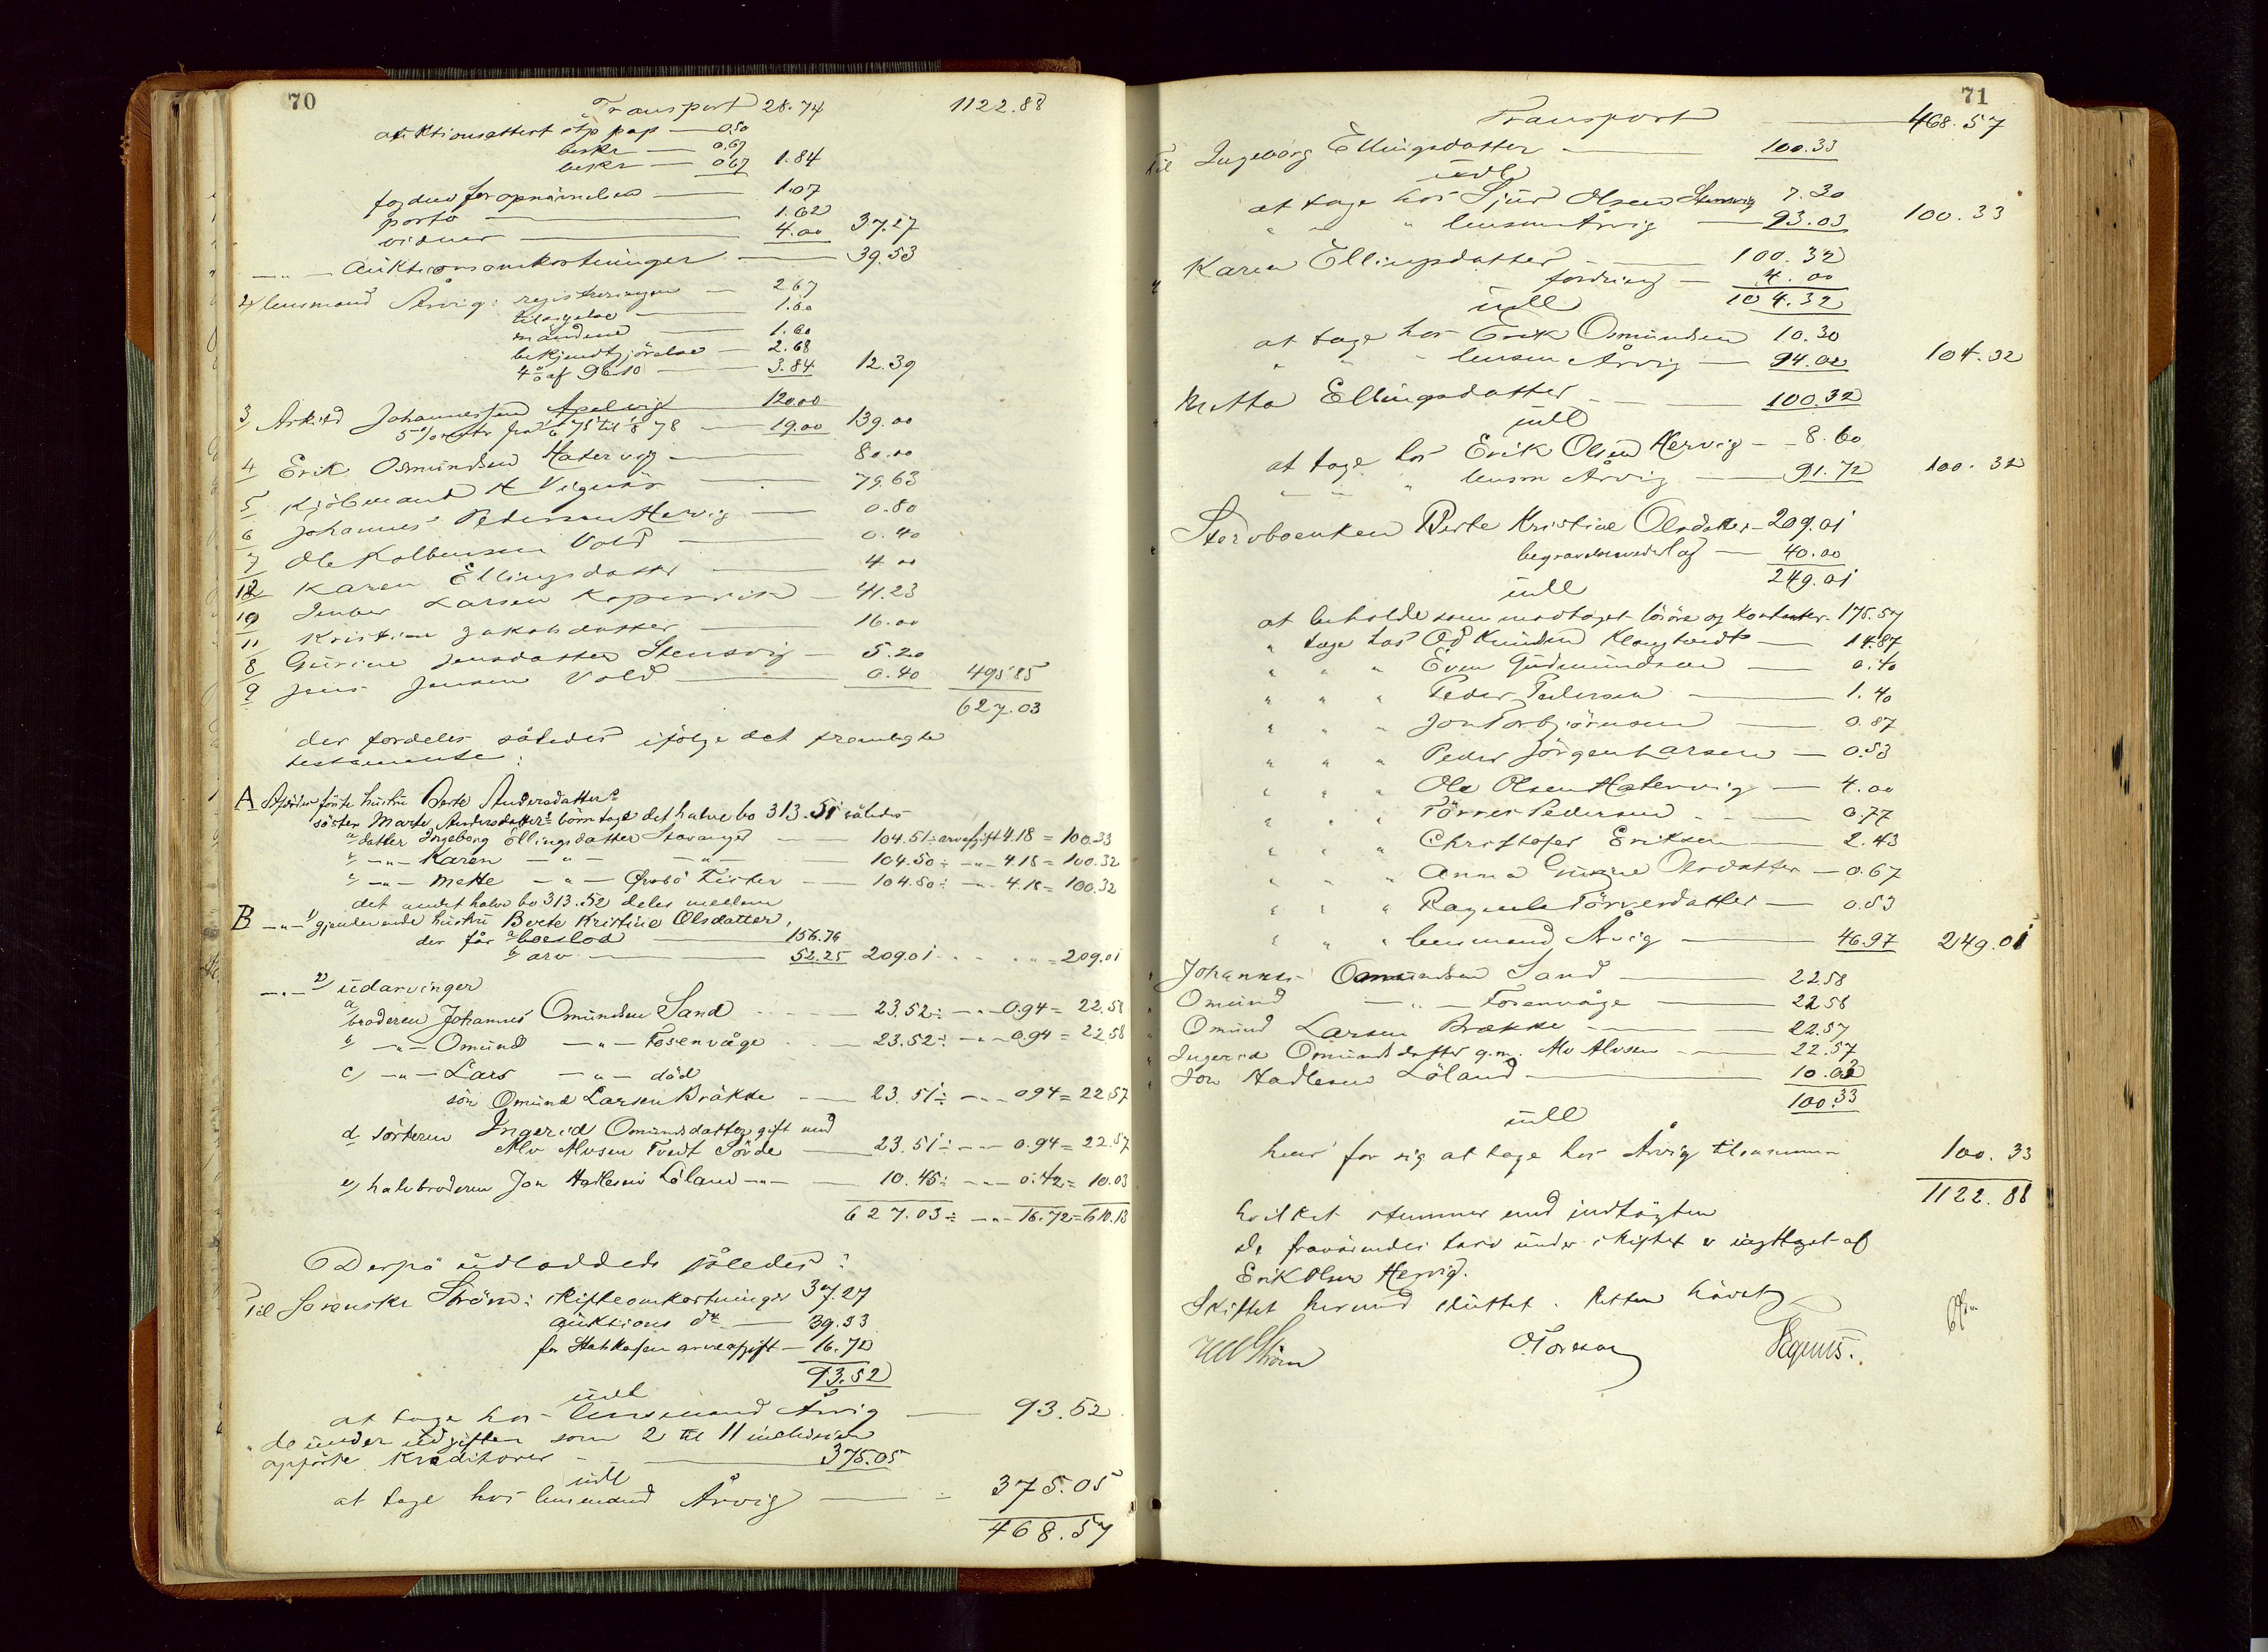 70
Transport 28.74 1122.88
auktionsattest stp pap — 0.50
beskr — 0.67
beskr — 0.67 1.84
fogden for opnævnelsen — 1.07
porto — 1.62
vidner — 4.00 37.27
— " — Auktionsomkostninger — 39.53
2/ lensmand Årvig: registreringen — 2.67
tilsigelse — 1.60
mændene — 1.60
bekjendtgjörelse — 2.68
4% af 96.10 — 3.84 12.39
3/ Askild Johannessen Apelvig 120.00
5% rente fra 75 til 78 — 19.00 139.00
4 Erik Osmundsen Hatervig — 80.00
5 Kjöbmand H Vignæs — 79.63
6 Johannes Pedersen Hervig — 0.80
7 Ole Kolbensen Vold — 0.40
12 Karen Ellingsdatter — 4.00
10 Larsen Kopervik — 41.23
11 Kristine Jakobsdatter — 16.00
8 Gurine Jensdatter Stensvig — 5.20
9 Jens Jensen Vold — 0.40 495.85
627.03
der fordeles således ifölge det fremlagte
testamente:
A Afdödes förste hustru Berte Andersdatters
söster Marte Andersdatters börn tage det halve bo 313.51 således
a datter Ingeborg Ellingsdatter Stavanger — 104.51 ÷ arveafgift 4.18 = 100.33
b — " — Karen — " — — " — 104.50 ÷ — " — 4.18 = 100.32
c — " — Mette — " — Lister — 104.50 ÷ — " — 4.18 = 100.32
det andet halve bo 313.52 deles mellem
B — " — 1) gjenlevende hustru Berte Kristine Olsdatter,
der får a boeslod — 156.76
b arv — 52.25 209.01 = 209.01
— " — 2) udarvinger
a broderen Johannes Omundsen Sand — 23.52 ÷ — " — 0.94 = 22.58
b — " — Omund — " — Fosenvåge — 23.52 ÷ — " — 0.94 = 22.58
c) — " — Lars — " — död
sön Omund Larsen Brække — 23.51 ÷ — " — 0.94 = 22.57
d sösteren Ingerid Omundsdatter gift med
Alv Alvsen Tvedt Sövde — 23.51 ÷ — " — 0.94 = 22.57
e) halvbroderen Jon Hadlesen Löland — " — 10.45 ÷ — " — 0.42 = 10.03
627.03 ÷ — " — 16.72 = 610.13
Derpå udloddedes således:
Til Sorenskr Ström: skifteomkostninger 37.27
auktions do — 39.53
for Statskassen arveafgift — 16.72
93.52
udl
at tage hos lensmand Årvig — 93.52
" de under udgiften som 2 til 11 inclusive
opförte kreditorer — 375.05
udl
at tage hos lensmand Årvig — 375.05
468.57
71
Transport — 468.57
Til Ingeborg Ellingsdatter — 100.33
udl
at tage hos Sjur Olsen Stensvig 7.30
" " " lensm Årvig — 93.03 100.33
" Karen Ellingsdatter — 100.32
fordring — 4.00
udl 104.32
at tage hos Erik Osmundsen 10.30
" " " lensm Årvig — 94.02 104.32
" Mette Ellingsdatter — 100.32
udl
at tage hos Erik Olsen Hervig — 8.60
" " " lensm Årvig — 91.72 100.32
" Stervboenken Berte Kristine Olsdatter — 209.01
begravelsesvederlag — 40.00
udl 249.01
at beholde som modtaget lösöre og kontanter 175.57
" tage hos Od Knudsen — 14.87
" " " Even Gudmundsen — 0.40
" " " Peder Pedersen — 1.40
" " " Jon Torbjörnsen — 0.87
" " " Peder Jörgen Larsen — 0.53
" " " Ole Olsen Hatervig — 4.00
" " " Törres Pedersen — 0.77
" " " Christofer Eriksen — 2.43
" " " Anna Olsdatter — 0.67
" " " Ragnele Törresdatter — 0.53
" " " lensmand Årvig — 46.97 249.01
" Johannes Omundsen Sand — 22.58
" Omund — " — Fosenvåge — 22.58
" Omund Larsen Brække — 22.57
" Ingerid Omundsdatter g. m. Alv Alvsen — 22.57
" Jon Hadlesen Löland — 10.03
100.33
udl
hver for sig at tage hos Årvig tilsammen 100.33
1122.88
hvilket stemmer med indtægten
De fraværendes tarv under skiftet er iagttaget af
Erik Olsen Hervig.
Skiftet hermed sluttet. Retten hævet
Ström O. Toresen